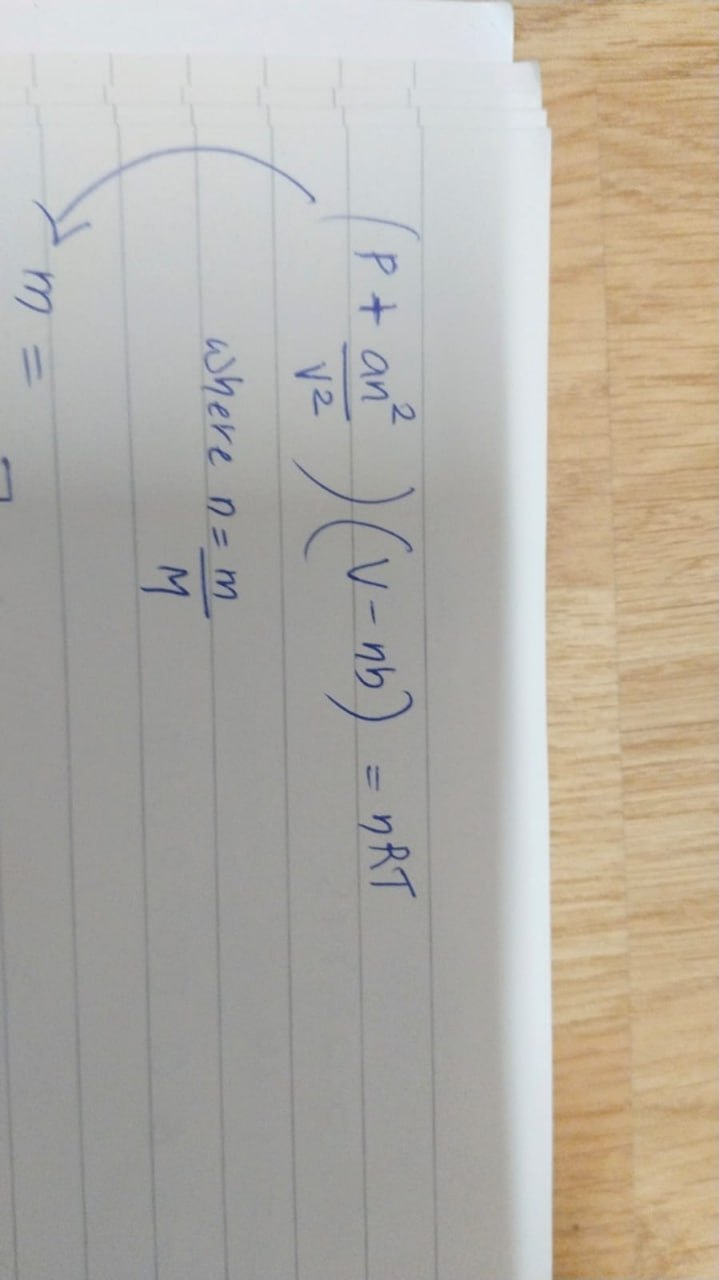 (P + an²/V²)(V - nb) = nRT
where n = m/M
m =